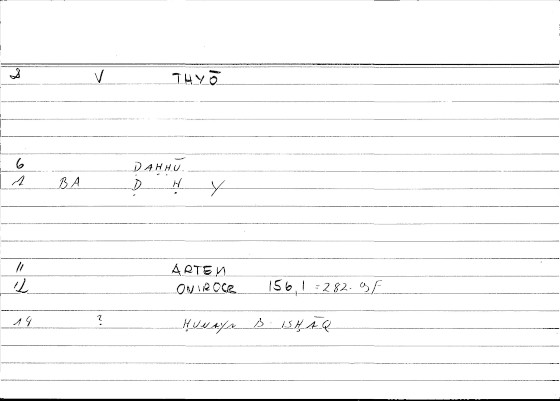 2 V THYŌ
6 ḌAḤḤŪ
1 BA Ḍ Ḥ Y
11 ARTEM
12 ONIROCR 156,1 = 282. 9f
14 ? ḤUNAYN B. ISḤĀQ